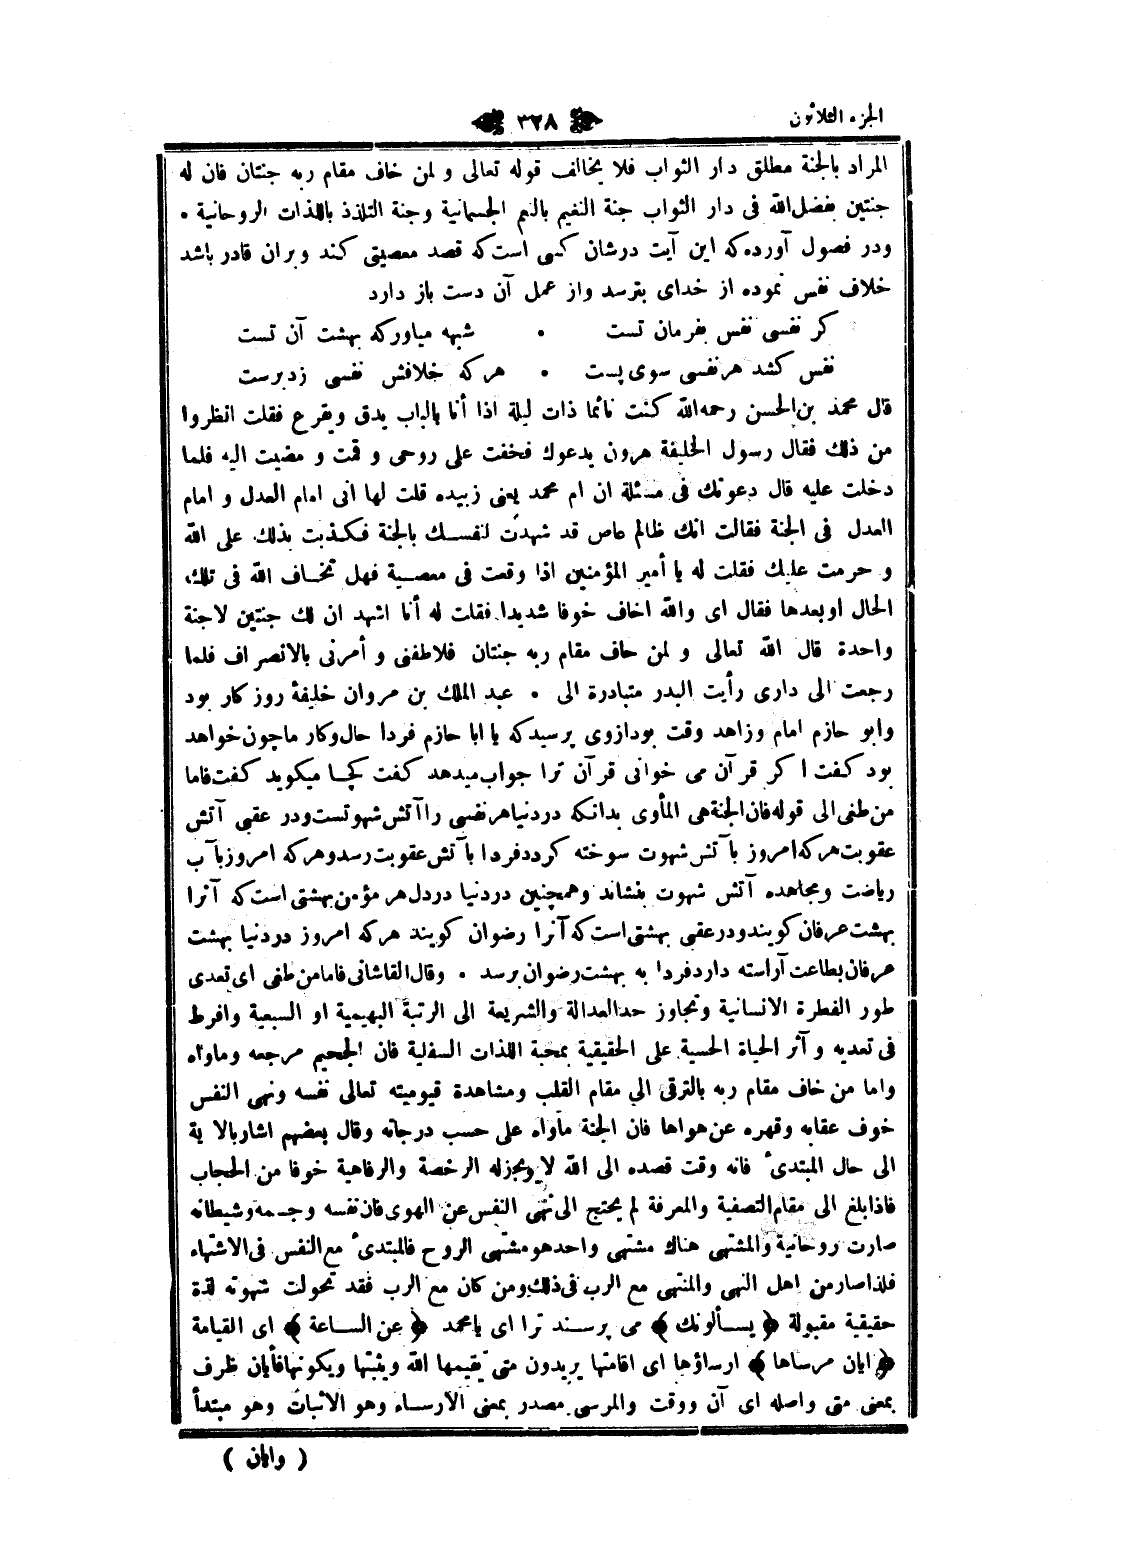 الجزء الثلاثون
٣٢٨
المراد بالجنة مطلق دار الثواب فلا يخالف قوله تعالى و لمن خاف مقام ربه جنتان فان له
جنتين بفضل الله فى دار الثواب جنة النعيم بالنعم الجسمانية وجنة التلذذ باللذات الروحانية •
ودر فصول آورده كه اين آيت درشان كسى است كه قصد معصيتى كند وبران قادر باشد
خلاف نفس نموده از خداى بترسد واز عمل آن دست باز دارد
كر نفسى نفس بفرمان تست • شبهه مياوركه بهشت آن تست
نفس كشد هر نفسى سوى پست • هركه خلافش نفسى زد برست
قال محمد بن الحسن رحمه الله كنت نائما ذات ليلة اذا أنا بالباب يدق ويقرع فقلت انظروا
من ذلك فقال رسول الخليفة هرون يدعوك فخفت على روحى و قمت و مضيت اليه فلما
دخلت عليه قال دعوتك فى مسئلة ان ام محمد يعنى زبيده قلت لها انى امام العدل و امام
العدل فى الجنة فقالت انك ظالم عاص قد شهدت لنفسك بالجنة فكذبت بذلك على الله
و حرمت عليك فقلت له يا أمير المؤمنين اذا وقعت فى معصية فهل تخاف الله فى تلك
الحال اوبعدها فقال اى والله اخاف خوفا شديدا فقلت له أنا اشهد ان لك جنتين لاجنة
واحدة قال الله تعالى و لمن خاف مقام ربه جنتان فلاطفنى و أمرنى بالانصراف فلما
رجعت الى دارى رأيت البدر متبادرة الى • عبد الملك بن مروان خليفۀ روزكار بود
وابو حازم امام وزاهد وقت بود ازوى پرسيدكه يا ابا حازم فردا حال وكار ماچون خواهد
بود كفت اكر قرآن مى خوانى قرآن ترا جواب ميدهد كفت كجا ميكويد كفت فاما
من طغى الى قوله فان الجنة هى المأوى بدانكه در دنيا هر نفسى را آتش شهوتست ودر عقبى آتش
عقوبت هركه امروز با آتش شهوت سوخته كردد فردا بآتش عقوبت رسد وهركه امروز بآب
رياضت ومجاهده آتش شهوت بنشاند وهمچنين دردنيا دردل هر مؤمن بهشتى است كه آنرا
بهشت عرفان كويند ودر عقبى بهشتى است كه آنرا رضوان كويند هركه امروز دردنيا بهشت
عرفان بطاعت آراسته دارد فردا به بهشت رضوان برسد • وقال القاشانى فاما من طغى اى تعدى
طور الفطرة الانسانية وتجاوز حد العدالة والشريعة الى الرتبة البهيمية او السبعية وافرط
فى تعديه و آثر الحياة الحسية على الحقيقية بمحبة اللذات السفلية فان الجحيم مرجعه وماواه
واما من خاف مقام ربه بالترقى الى مقام القلب ومشاهدة قيوميته تعالى نفسه ونهى النفس
خوف عقابه وقهره عن هواها فان الجنة مأواه على حسب درجاته وقال بعضهم اشار بالآية
الى حال المبتدئ فانه وقت قصده الى الله لا يجوز له الرخصة والرفاهية خوفا من الحجاب
فاذا بلغ الى مقام التصفية والمعرفة لم يحتج الى نهى النفس عن الهوى فان نفسه وجسمه وشيطانه
صارت روحانية والمشتهى هناك مشتهى واحد هو مشتهى الروح فالمبتدئ مع النفس فى الاشتهاء
فلذا صار من اهل النهى والمنتهى مع الرب فى ذلك ومن كان مع الرب فقد تحولت شهوته لذة
حقيقية مقبولة ﴿ يسألونك ﴾ مى پرسند ترا اى يا محمد ﴿ عن الساعة ﴾ اى القيامة
﴿ ايان مرساها ﴾ ارساؤها اى اقامتها يريدون متى يقيمها الله ويثبتها ويكونها فأيان ظرف
بمعنى متى واصله اى آن ووقت والمرسى مصدر بمعنى الارساء وهو الاثبات وهو مبتدأ
( وايان )